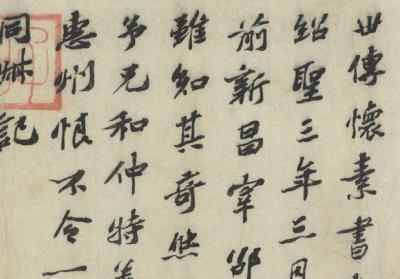 世傳懷素書
紹聖三年三月
前新昌宰邵
雖知其奇然
予兄和仲特善
惠州恨不令一
同叔記